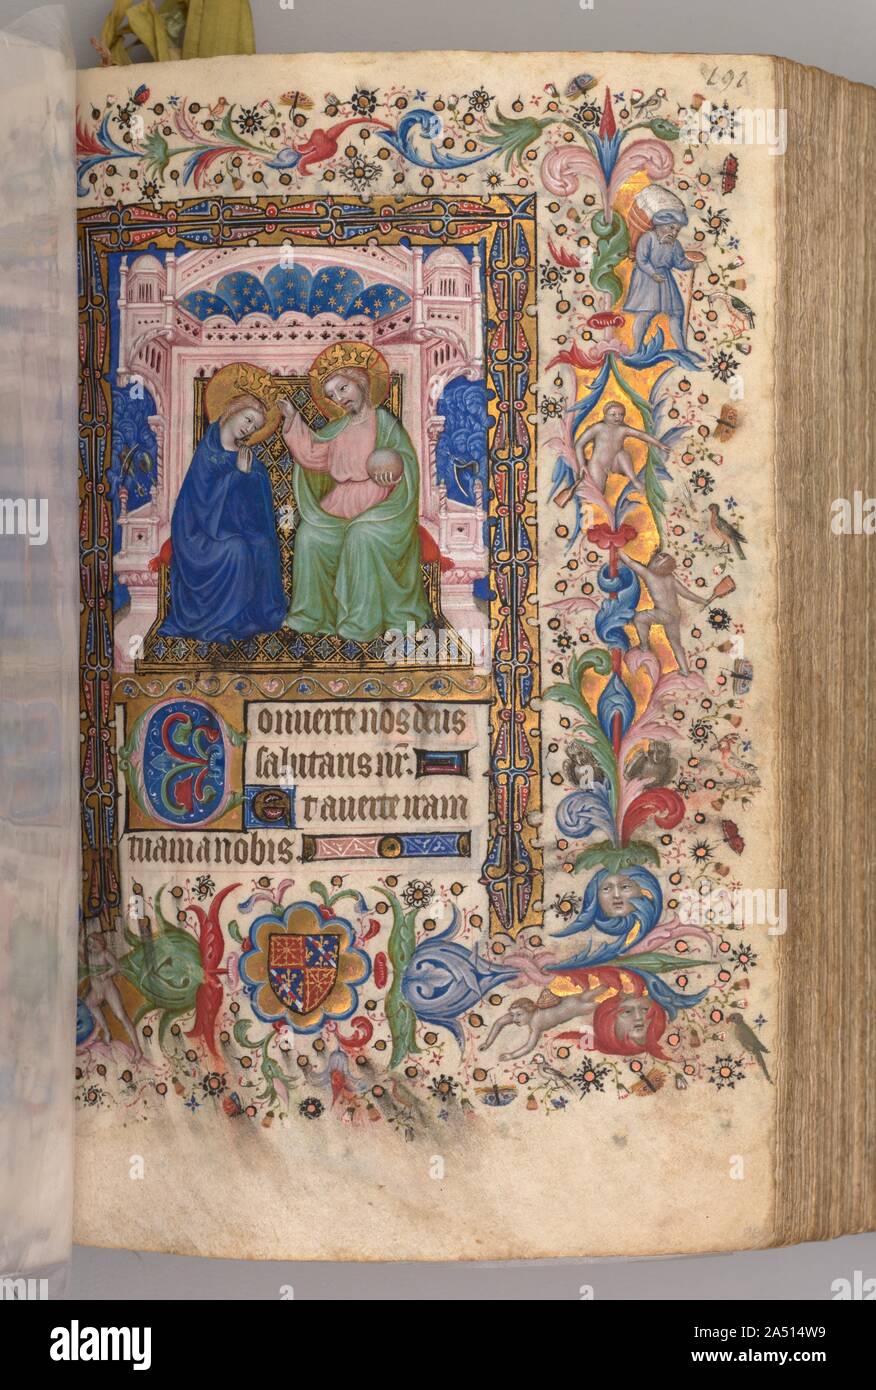 Conuerte nos deus
salutaris nr̄.
Et auerte iram
tuam a nobis.
alamy
Image ID: 2A514W9
www.alamy.com